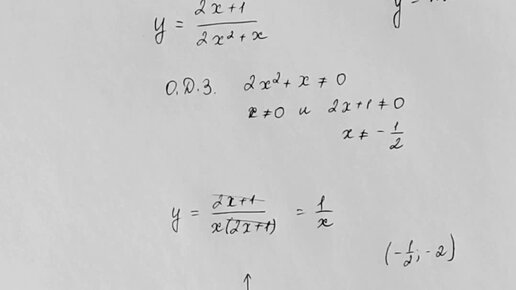 y = (2x+1)/(2x²+x)
y =
О.Д.З. 2x²+x ≠ 0
x ≠ 0 и 2x+1 ≠ 0
x ≠ -1/2
y = (2x+1)/(x(2x+1)) = 1/x
(-1/2; -2)
↑